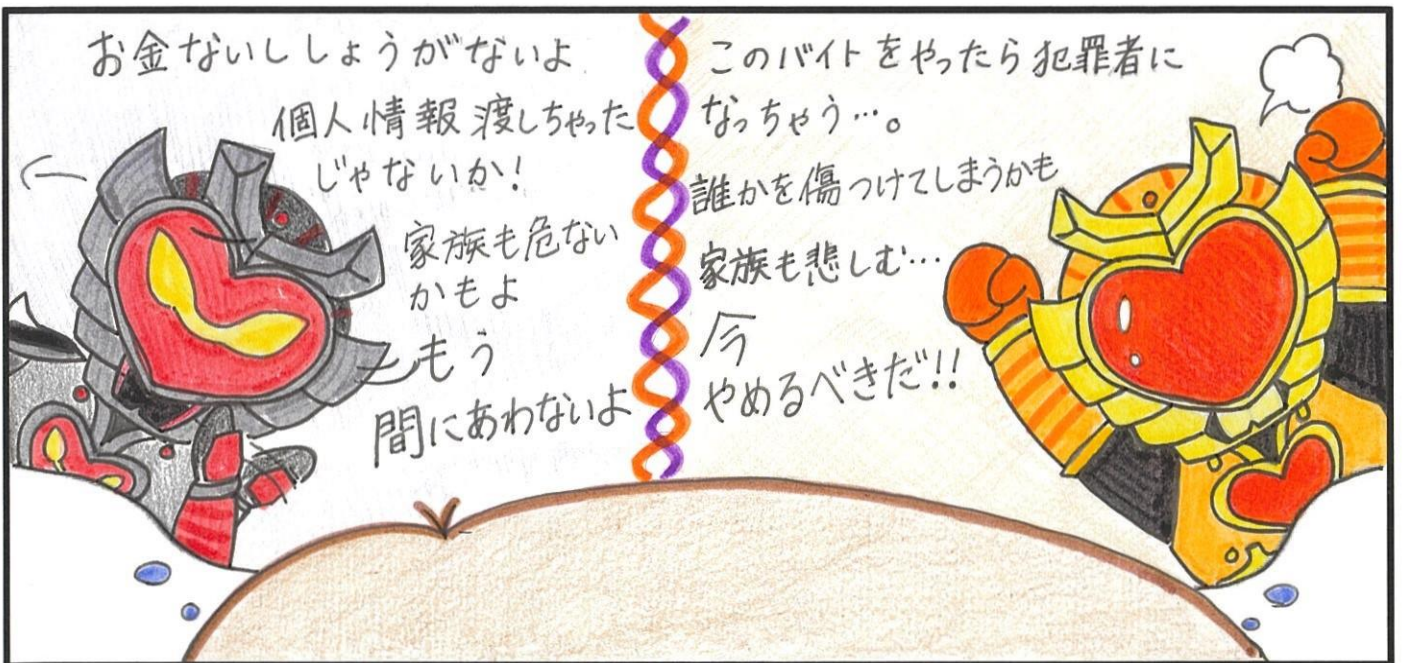 お金ないししょうがないよ
個人情報渡しちゃった
じゃないか!
家族も危ない
かもよ
もう
間にあわないよ
このバイトをやったら犯罪者に
なっちゃう…。
誰かを傷つけてしまうかも
家族も悲しむ…
今
やめるべきだ!!